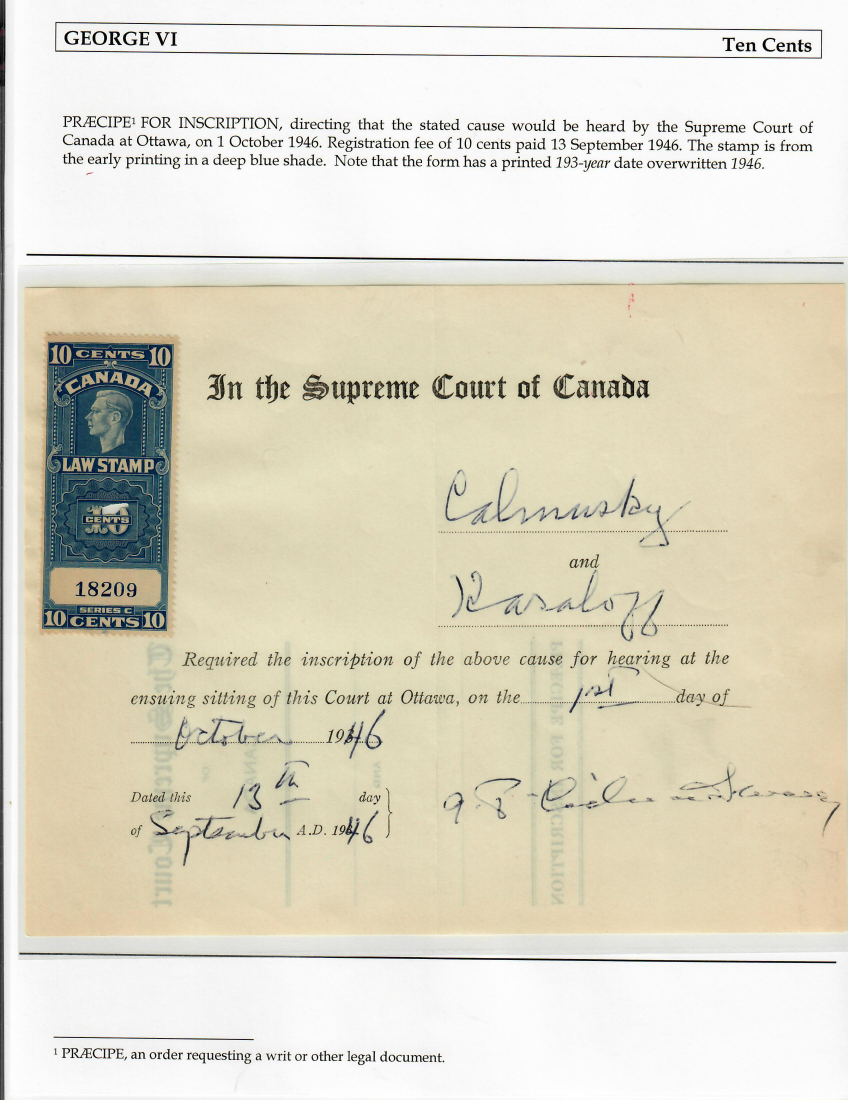 GEORGE VI
Ten Cents
PRÆCIPE¹ FOR INSCRIPTION, directing that the stated cause would be heard by the Supreme Court of
Canada at Ottawa, on 1 October 1946. Registration fee of 10 cents paid 13 September 1946. The stamp is from
the early printing in a deep blue shade. Note that the form has a printed 193-year date overwritten 1946.
10 CENTS 10
CANADA
LAW STAMP
10
CENTS
18209
SERIES C
10 CENTS 10
In the Supreme Court of Canada
Calmusky
and
Karaloff
Required the inscription of the above cause for hearing at the
ensuing sitting of this Court at Ottawa, on the 1st day of
October 1946
Dated this 13th day
of September A.D. 1946
¹ PRÆCIPE, an order requesting a writ or other legal document.